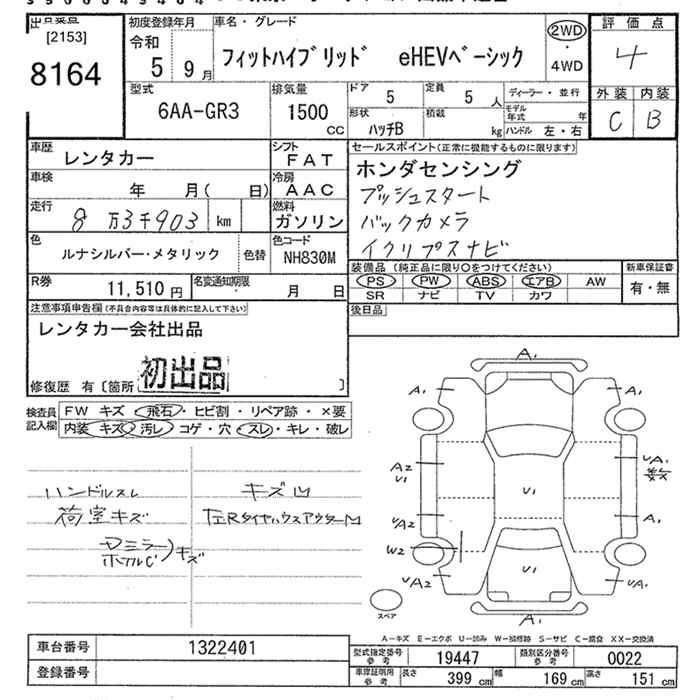 出品業者
[2153]
8164
初度登録年月
令和
5 9月
車名・グレード
フィットハイブリッド eHEVベーシック
2WD
・
4WD
評価点
4
型式
6AA-GR3
排気量
1500
CC
ドア 5
定員 5 人
形状 ハッチB
積載 kg
ディーラー・並行
モデル年式 年
ハンドル 左・右
外装 内装
C B
車歴 レンタカー
シフト FAT
車検 年 月( 日)
冷房 AAC
走行 8万3千903 km
燃料 ガソリン
色 ルナシルバー・メタリック 色替
色コード NH830M
R券 11,510 円
名変通知期限 月 日
セールスポイント(正常に機能するものに限ります)
ホンダセンシング
プッシュスタート
バックカメラ
イクリプスナビ
装備品(純正品に限り○をつけてください)
新車保証書
PS PW ABS エアB AW
SR ナビ TV カワ
有・無
後日品
注意事項申告欄(不具合内容等は具体的に記入して下さい)
レンタカー会社出品
初出品
修復歴 有〔箇所 〕
検査員記入欄
FW キズ・飛石・ヒビ割・リペア跡・×要
内装 キズ・汚レ・コゲ・穴・スレ・キレ・破レ
ハンドルスレ
荷室キズ
キズ凹
左Rタイヤハウスアウター凹
A1
A1
A1
A2
U1
UA1
数
U1
UA2
A1
W2
UA2
U1
UA1
スペア
A-キズ E-エクボ U-凹み W-補修跡 S-サビ C-腐食 XX-交換済
車台番号 1322401
登録番号
型式指定番号 参考 19447
類別区分番号 参考 0022
車庫証明用 参考
長さ 399 cm
幅 169 cm
高さ 151 cm